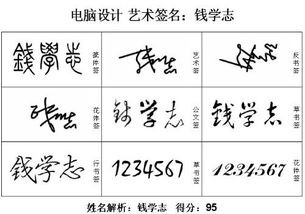 电脑设计 艺术签名：钱学志
錢學志 篆体签
钱学志 艺术签
反书签
钱学志 花体签
钱学志 公文签
钱学志 草书签
钱学志 行书签
1234567 草书签
1234567 花钟签
姓名解析：钱学志 得分：95